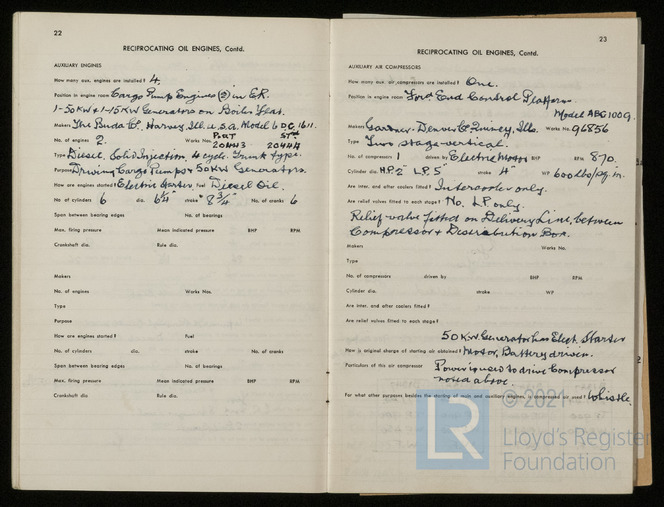 22
RECIPROCATING OIL ENGINES, Contd.
AUXILIARY ENGINES
How many aux. engines are installed? 4.
Position in engine room Cargo Pump Engines (2) in E.R.
1-50KW & 1-15KW Generators on Boiler Flat.
Makers The Buda Co. Harvey, Ill. U.S.A. Model 6 DC 1611.
Port STBD
No. of engines 2. Works Nos. 20443 20444
Type Diesel. Solid Injection. 4 cycle. Trunk type.
Purpose Driving Cargo Pumps & 50KW Generators.
How are engines started? Electric Starter, Fuel Diesel Oil.
No. of cylinders 6 dia. 6¼" stroke 8¾" No. of cranks 6
Span between bearing edges No. of bearings
Max. firing pressure Mean indicated pressure BHP RPM
Crankshaft dia. Rule dia.
Makers
No. of engines Works Nos.
Type
Purpose
How are engines started? Fuel
No. of cylinders dia. stroke No. of cranks
Span between bearing edges No. of bearings
Max. firing pressure Mean indicated pressure BHP RPM
Crankshaft dia. Rule dia.
23
RECIPROCATING OIL ENGINES, Contd.
AUXILIARY AIR COMPRESSORS
How many aux. air compressors are installed? One.
Position in engine room Ford End Control Platform.
Model ABG 1009.
Makers Gardner-Denver Co Quincy, Ills. Works No. 96856
Type Two stage-vertical.
No. of compressors 1 driven by Electric Motor BHP RPM 870.
Cylinder dia. H.P. 2" L.P. 5" stroke 4" WP 600 lbs/sq.in.
Are inter. and after coolers fitted? Intercooler only.
Are relief valves fitted to each stage? No. L.P. only.
Relief-valve fitted on Delivery Line, between
Compressor & Distribution Box.
Makers Works No.
Type
No. of compressors driven by BHP RPM
Cylinder dia. stroke WP
Are inter. and after coolers fitted?
Are relief valves fitted to each stage?
50KW Generator has Elect. Starter
How is original charge of starting air obtained? Motor, Battery driven.
Particulars of this air compressor Power is used to drive Compressor
noted above.
For what other purposes besides the starting of main and auxiliary engines, is compressed air used? Whistle.
© 2021
LR
Lloyd's Register
Foundation